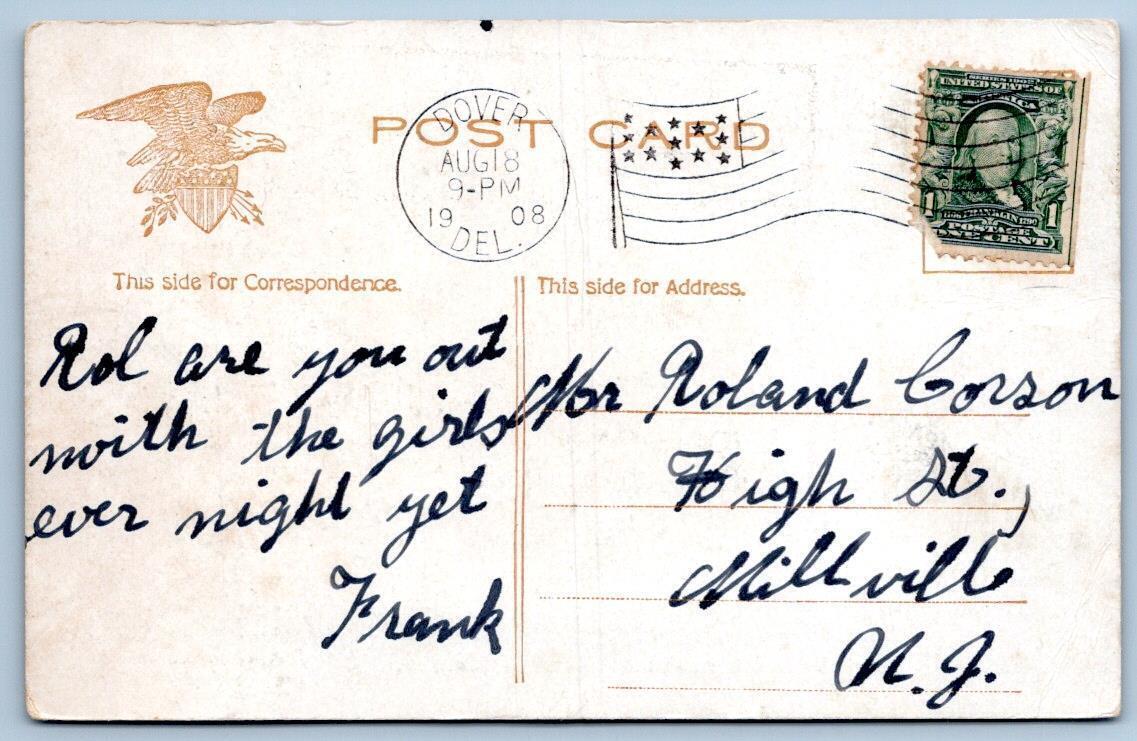 POST CARD
DOVER
AUG 18
9-PM
19 08
DEL.
SERIES 1902
UNITED STATES OF
AMERICA
1 1
POSTAGE
ONE CENT
This side for Correspondence.
This side for Address.
Rol are you out
with the girls
ever night yet
Frank
Mr Roland Corson
High St.,
Millville
N. J.